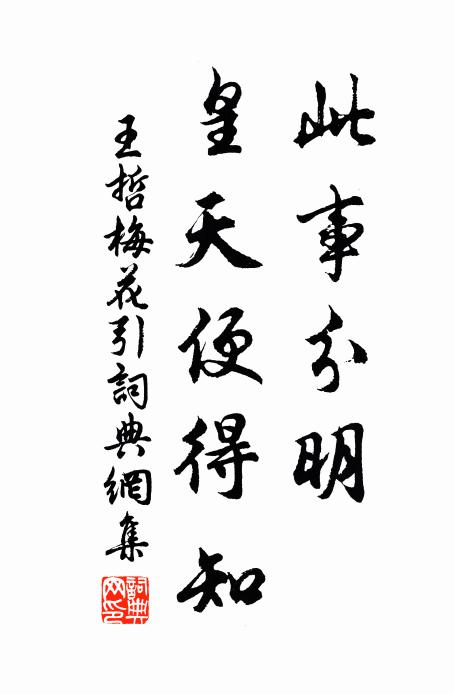 此事分明
皇天便得知
王哲梅花引詞典網集
詞典網印